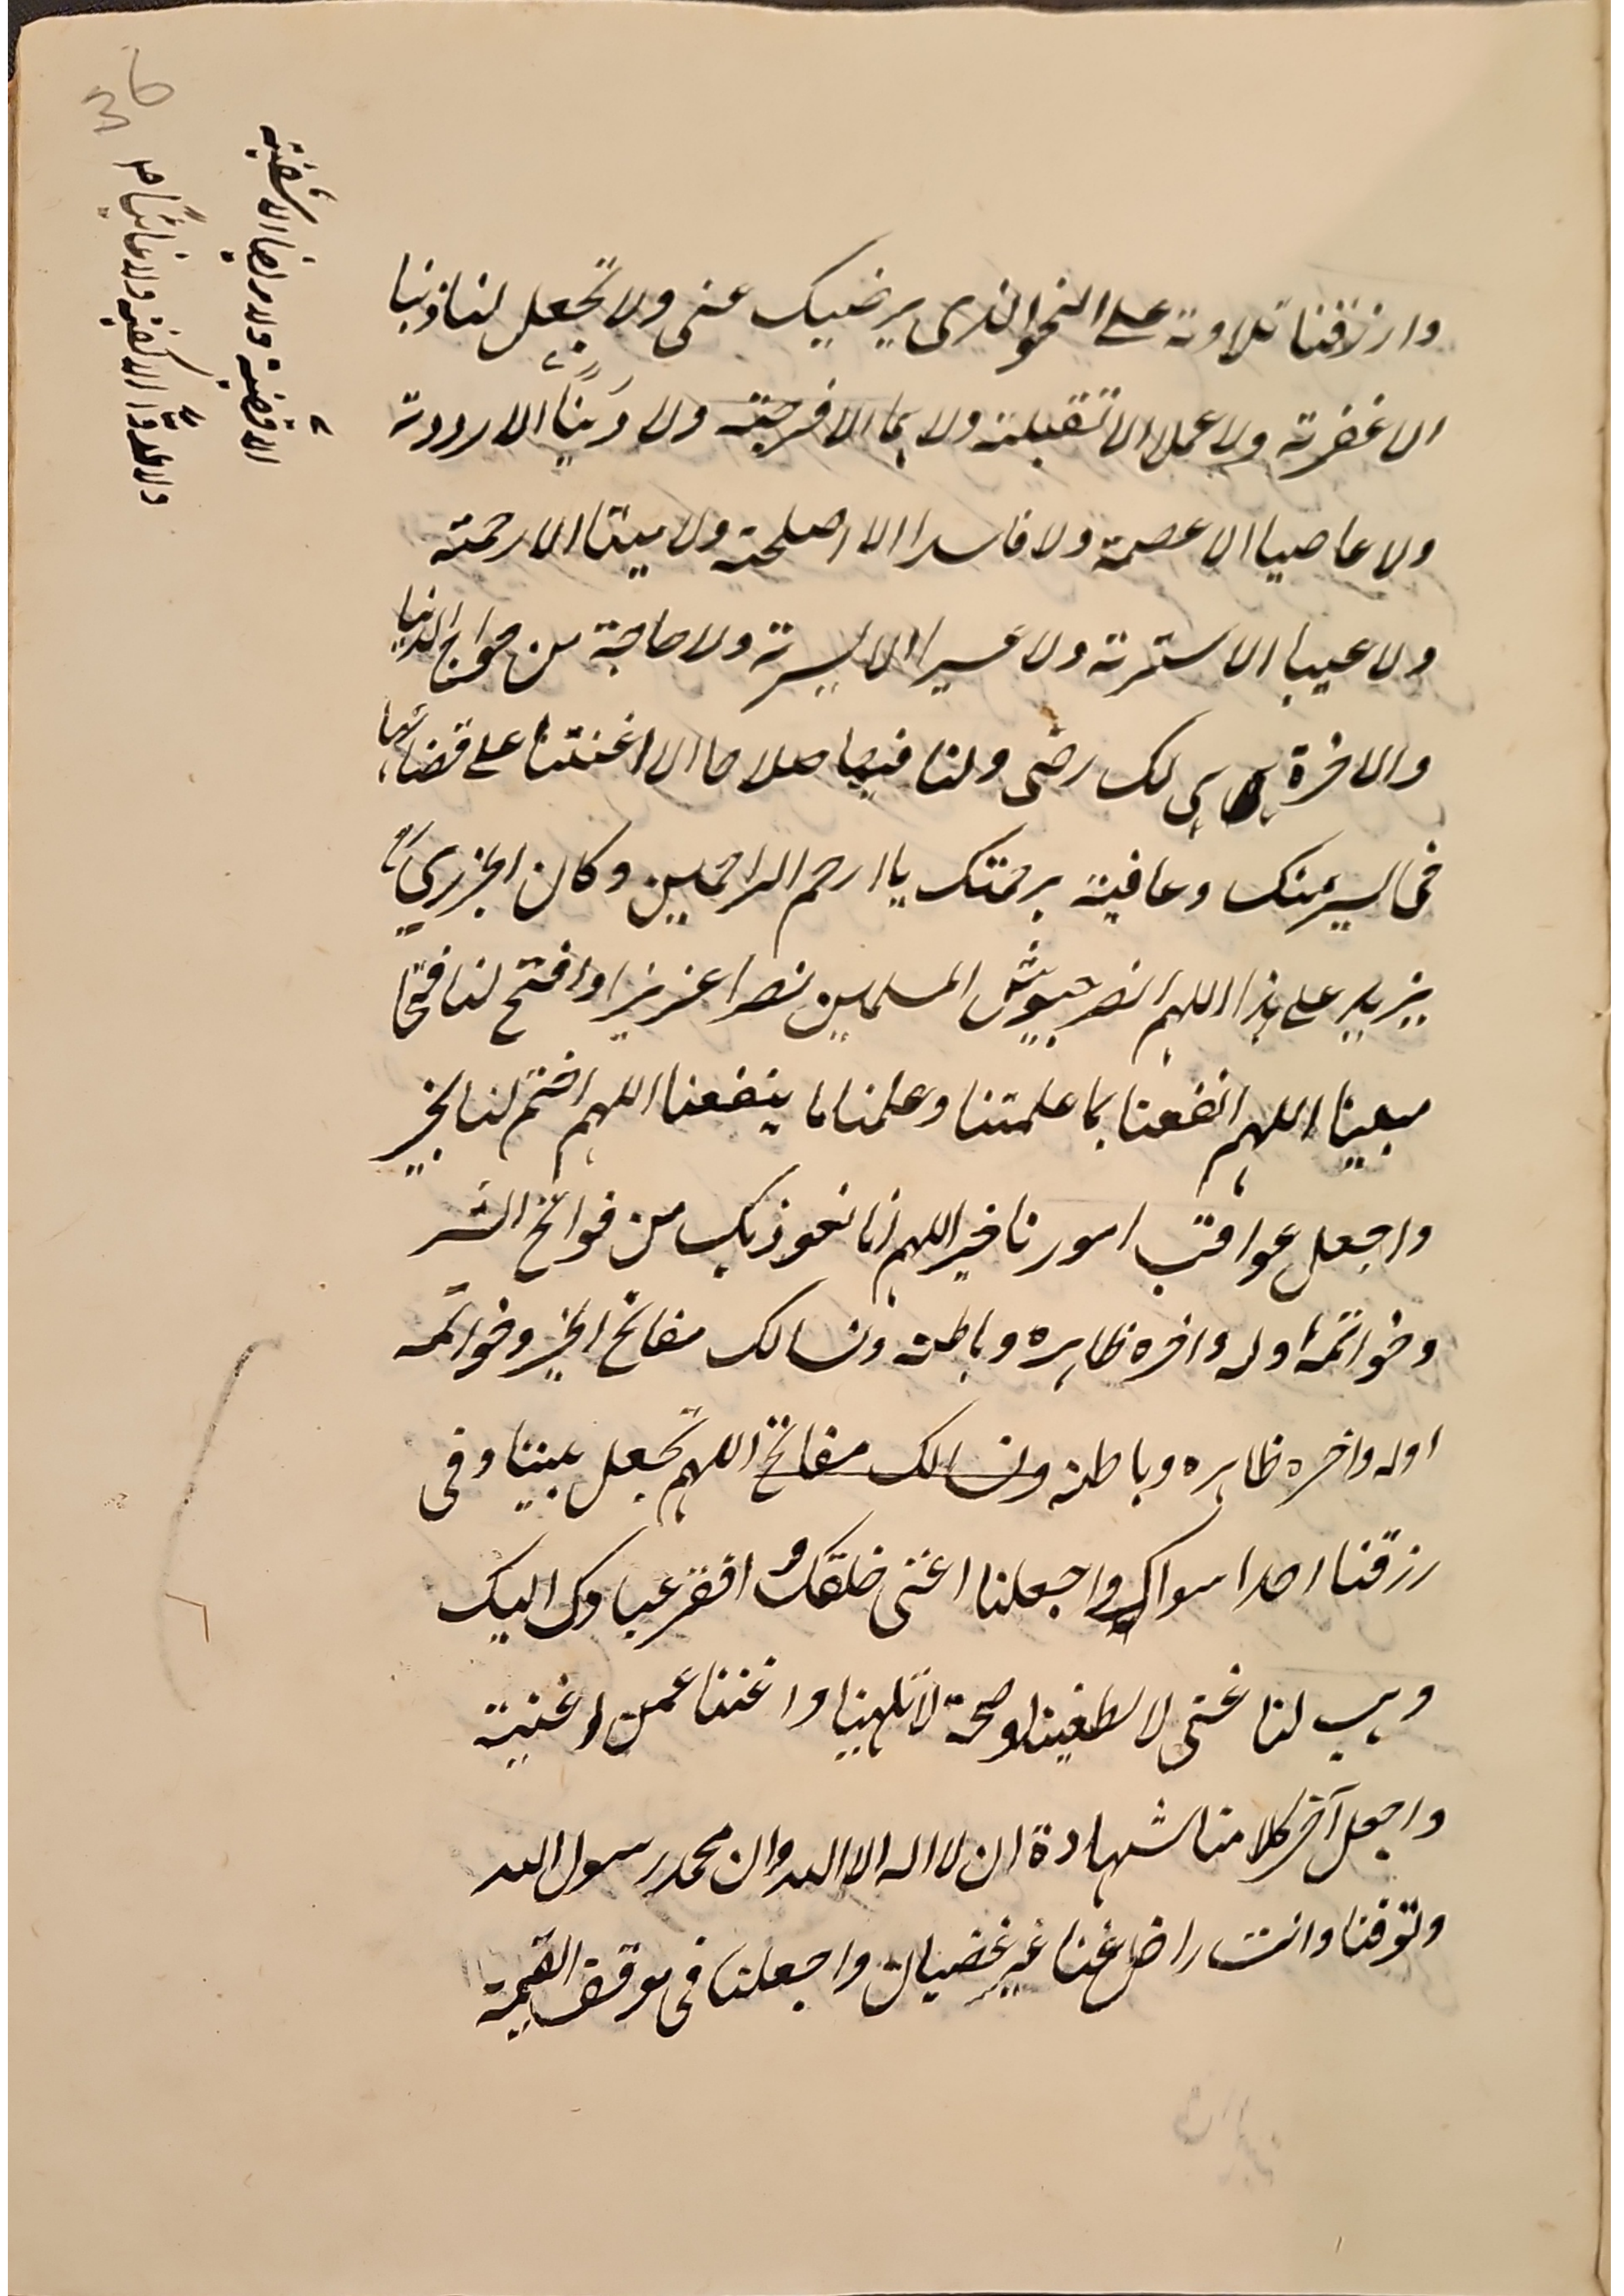 وارزقنا تلاوته على النحو الذى يرضيك عنى ولا تجعل لنا ذنبا
الا غفرته ولا عملا الا تقبلته ولا هما الا فرجته ولا دينا الا رددته
ولا عاصيا الا عصمته ولا فاسدا الا اصلحته ولا ميتا الا رحمته
ولا عيبا الا سترته ولا عسيرا الا يسرته ولا حاجة من حوائج الدنيا
والاخرة هى لك رضى ولنا فيها صلاحا الا اعنتنا على قضائها
فى يسر منك وعافية برحمتك يا ارحم الراحمين وكان الجزرى
يزيد على هذا اللهم انصر جيوش المسلمين نصرا عزيزا وافتح لنا فتحا
مبينا اللهم انفعنا بما علمتنا وعلمنا ما ينفعنا اللهم اختم لنا بخير
واجعل عواقب امورنا خير اللهم انا نعوذ بك من فواتح الشر
وخواتمه اوله واخره ظاهره وباطنه ونسالك مفاتح الخير وخواتمه
اوله واخره ظاهره وباطنه ونسالك مفاتح اللهم تجعل بيننا وفى
رزقنا احدا سواك واجعلنا اغنى خلقك و افقر عبادك اليك
وهب لنا غنى لا يطغينا وصحة لا تلهينا واغننا عمن اغنيته
واجعل آخر كلامنا شهادة ان لا اله الا الله وان محمد رسول الله
وتوفنا وانت راض عنا غير غضبان واجعلنا فى موقف القيمة
ولا مريضا الا شفيته
ولا عدوا الا كفيته ولا غائبا
36